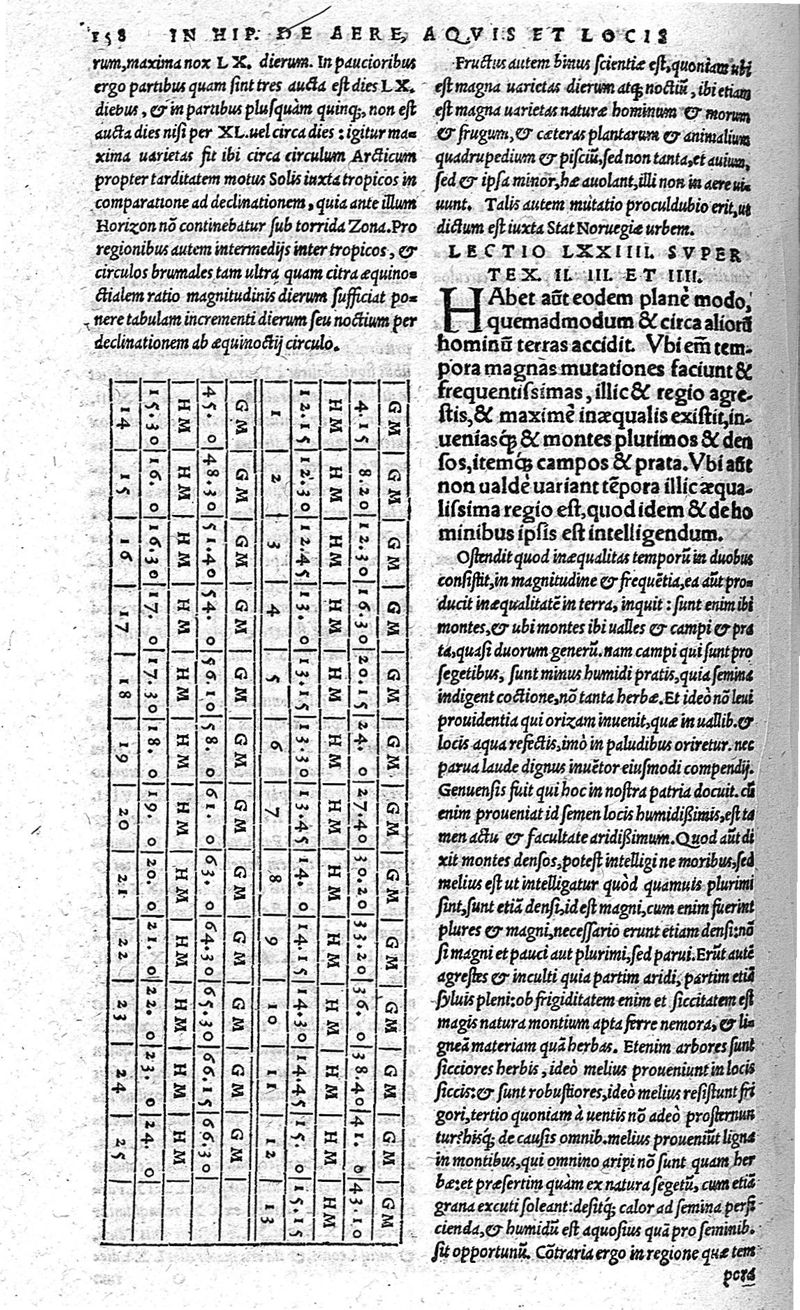 158 IN HIP. DE AERE, AQVIS ET LOCIS
rum, maxima nox LX. dierum. In paucioribus
ergo partibus quam sint tres aucta est dies LX.
diebus, & in partibus plusquàm quinq;, non est
aucta dies nisi per XL. uel circa dies : igitur ma=
xima uarietas fit ibi circa circulum Arcticum
propter tarditatem motus Solis iuxta tropicos in
comparatione ad declinationem, quia ante illum
Horizon nõ continebatur sub torrida Zona. Pro
regionibus autem intermedijs inter tropicos, &
circulos brumales tam ultra quam citra æquino=
ctialem ratio magnitudinis dierum sufficiat po=
nere tabulam incrementi dierum seu noctium per
declinationem ab æquinoctij circulo.
GM GM GM GM GM GM GM GM GM GM GM GM GM
4.15 8.20 12.30 16.30 20.15 24. 0 27.40 30.20 33.20 36. 0 38.40 41. 0 43.10
HM HM HM HM HM HM HM HM HM HM HM HM HM
12.15 12.30 12.45 13. 0 13.15 13.30 13.45 14. 0 14.15 14.30 14.45 15. 0 15.15
1 2 3 4 5 6 7 8 9 10 11 12 13
GM GM GM GM GM GM GM GM GM GM GM GM
45. 0 48.30 51.40 54. 0 56.10 58. 0 61. 0 63. 0 64.30 65.30 66.15 66.30
HM HM HM HM HM HM HM HM HM HM HM HM
15.30 16. 0 16.30 17. 0 17.30 18. 0 19. 0 20. 0 21. 0 22. 0 23. 0 24. 0
14 15 16 17 18 19 20 21 22 23 24 25
Fructus autem huius scientiæ est, quoniam ubi
est magna uarietas dierum atq; noctiũ, ibi etiam
est magna uarietas naturæ hominum & morum
& frugum, & cæteras plantarum & animalium
quadrupedium & pisciũ, sed non tanta, et auium,
sed & ipsa minor, hæ auolant, illi non in aere ui=
uunt. Talis autem mutatio proculdubio erit, ut
dictum est iuxta Stat Noruegiæ urbem.
LECTIO LXXIIII. SVPER
TEX. II. III. ET IIII.
HAbet aũt eodem planè modo,
quemadmodum & circa aliorũ
hominũ terras accidit. Vbi em̃ tem-
pora magnas mutationes faciunt &
frequentissimas, illic & regio agre-
stis, & maximè inæqualis existit, in-
uenias q̃; & montes plurimos & den
sos, item q̃; campos & prata. Vbi aũt
non ualdè uariant tẽpora illic æqua-
lissima regio est, quod idem & de ho
minibus ipsis est intelligendum.
Ostendit quod inæqualitas temporũ in duobus
consistit, in magnitudine & frequẽtia, ea aũt pro=
ducit inæqualitatẽ in terra, inquit : sunt enim ibi
montes, & ubi montes ibi ualles & campi & pra
ta, quasi duorum generũ. nam campi qui sunt pro
segetibus, sunt minus humidi pratis, quia semina
indigent coctione, nõ tanta herbæ. Et ideò nõ leui
prouidentia qui orizam inuenit, quæ in uallib. &
locis aqua refectis, imò in paludibus oriretur. nec
parua laude dignus inuẽtor eiusmodi compendij.
Genuensis fuit qui hoc in nostra patria docuit. cũ
enim proueniat id semen locis humidißimis, est ta
men actu & facultate aridißimum. Quod aũt di
xit montes densos, potest intelligi ne moribus, sed
melius est ut intelligatur quòd quamuis plurimi
sint, sunt etiã densi, id est magni, cum enim fuerint
plures & magni, necessariò erunt etiam densi: nõ
si magni et pauci aut plurimi, sed parui. Erũt autẽ
agrestes & inculti quia partim aridi, partim etiã
syluis pleni: ob frigiditatem enim et siccitatem est
magis natura montium apta ferre nemora, & li=
gneã materiam quã herbas. Etenim arbores sunt
sicciores herbis, ideò melius proueniunt in locis
siccis: & sunt robustiores, ideò melius resistunt fri
gori, tertio quoniam à uentis nõ adeò prosternun
tur: hisq; de causis omnib. melius proueniũt ligna
in montibus, qui omnino aripi nõ sunt quam her
bæ: et præsertim quàm ex natura segetũ, cum etiã
grana excuti soleant: desitq; calor ad semina perfi
cienda, & humidũ est aquosius quã pro seminib.
sit opportunũ. Cõtraria ergo in regione quæ tem
pora